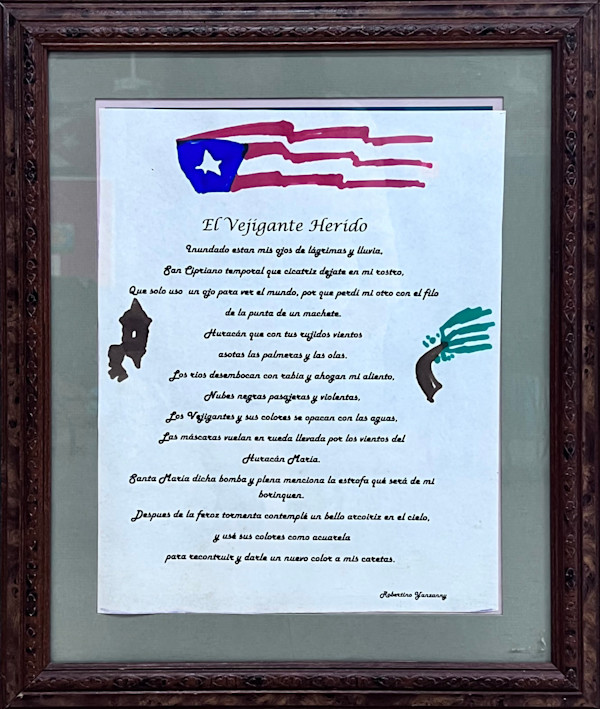 El Vejigante Herido
Inundado estan mis ojos de lágrimas y lluvia,
San Cipriano temporal que cicatriz dejate en mi rostro,
Que solo uso un ojo para ver el mundo, por que perdi mi otro con el filo
de la punta de un machete.
Huracán que con tus rujidos vientos
asotas las palmeras y las olas.
Los rios desembocan con rabia y ahogan mi aliento,
Nubes negras pasajeras y violentas,
Los Vejigantes y sus colores se opacan con las aguas,
Las máscaras vuelan en rueda llevada por los vientos del
Huracán Maria.
Santa Maria dicha bomba y plena menciona la estrofa qué será de mi
borinquen.
Despues de la feroz tormenta contemplé un bello arcoiriz en el cielo,
y usé sus colores como acuarela
para recontruir y darle un nuevo color a mis caretas.
Robertino Yanzanny